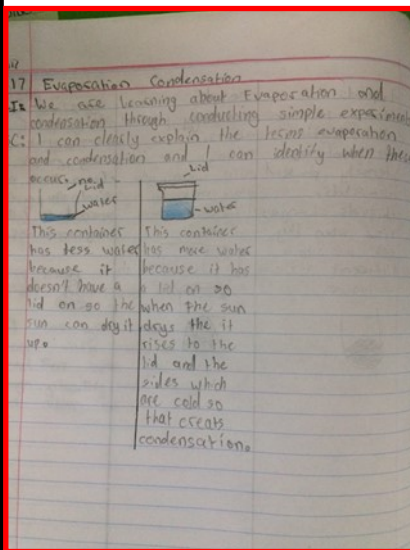 17 Evaporation Condensation
We are Learning about Evaporation and
condensation through conducting simple experiments
C: I can clearly explain the terms evaporation
and condensation and I can identify when they
occur.
no Lid
water
This container
has less water
because it
doesn't have a
lid on so the
sun can dry it
up.
Lid
water
This container
has more water
because it has
a lid on so
when the sun
drys the it
rises to the
lid and the
sides which
are cold so
that creats
condensation.